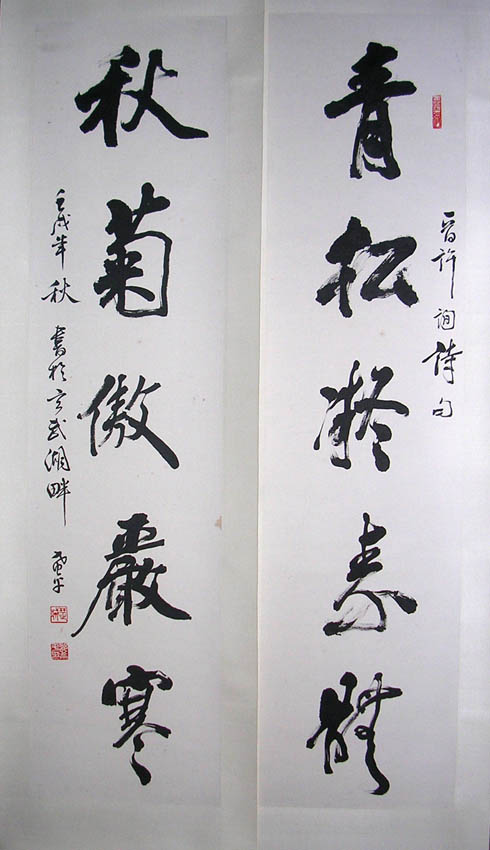 晉許詢詩句
青松凝素髓
秋菊傲嚴寒
壬戌年秋 書於玄武湖畔